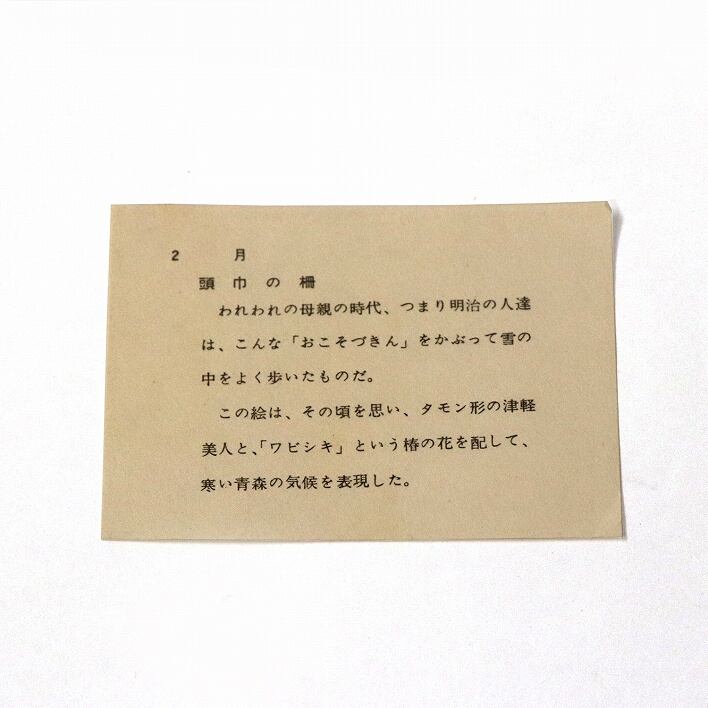 2　　月
頭巾の柵
われわれの母親の時代、つまり明治の人達
は、こんな「おこそづきん」をかぶって雪の
中をよく歩いたものだ。
この絵は、その頃を思い、タモン形の津軽
美人と、「ワビシキ」という椿の花を配して、
寒い青森の気候を表現した。